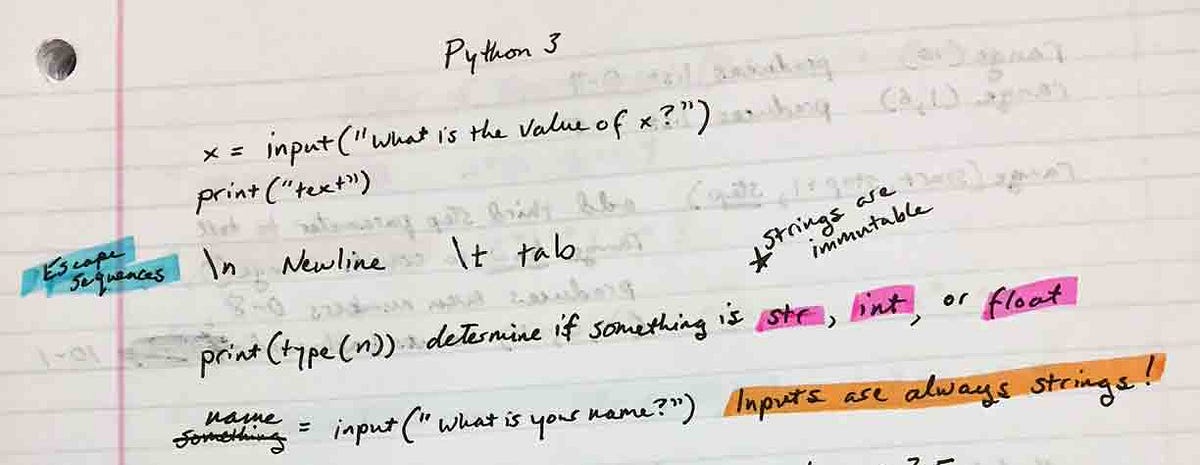 Python 3
x = input("What is the value of x?")
print("text")
★ strings are
immutable
Escape
Sequences
\n Newline \t tab
print(type(n)) determine if something is str, int, or float
name
something = input("What is your name?") Inputs are always strings!